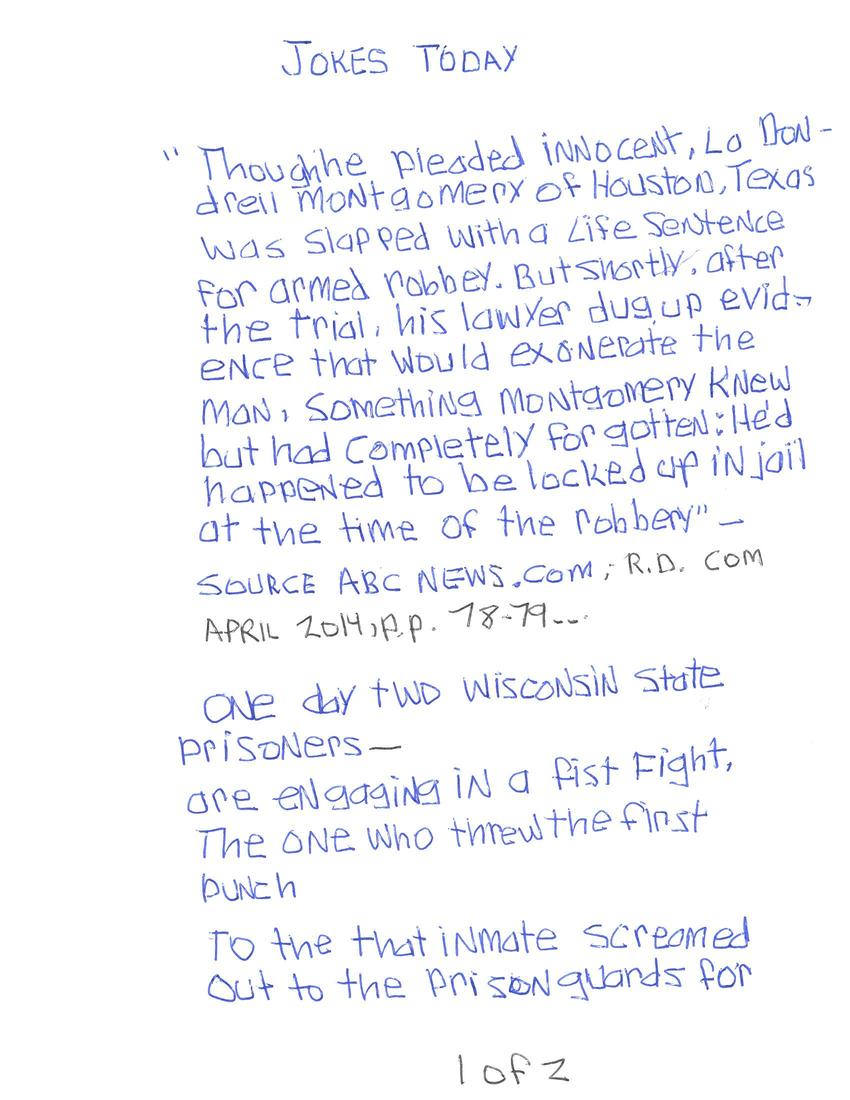 JOKES TODAY
" Thoughhe pleaded iNNOCENT, La DON-
drell MONtgomery of Houston, Texas
was slapped with a Life SENtENCE
for armed robbey. But shortly, after
the trial, his lawyer dug up evid-
ENCE that would exoNerate the
MaN, Something MONtgomery KNew
but had completely forgotten: He'd
happeNed to be locked up iN jail
at the time of the robbery" -
SOURCE ABC NEWS.COM; R.D. COM
APRIL 2014, p.p. 78-79...
ONE day two WiscoNsiN State
prisoNers—
are eNgagiNg iN a fist Fight,
The ONE who threw the first
puNch
To the that iNmate screamed
Out to the prisoN guards for
1 of 2